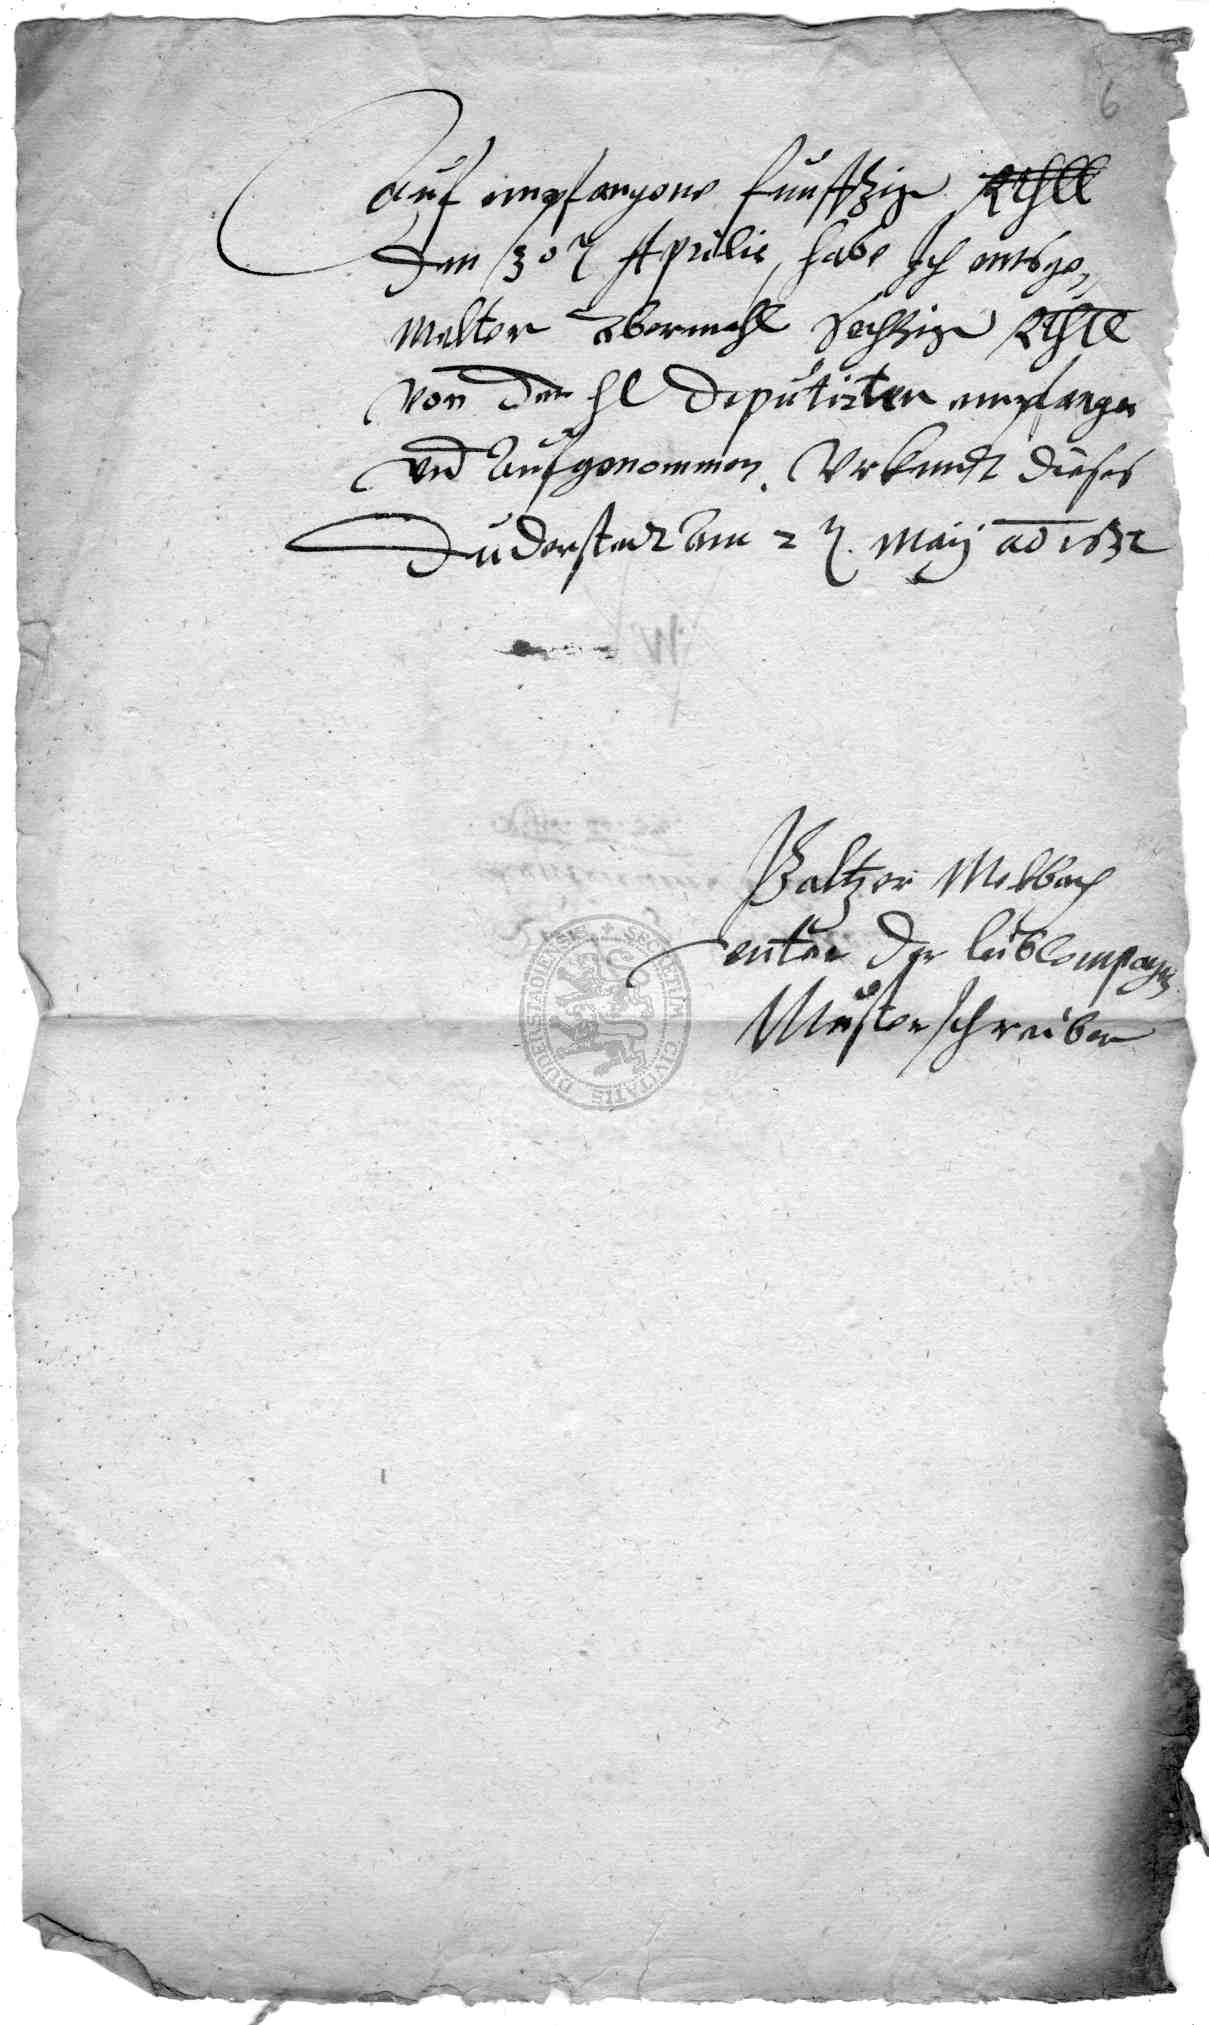 6
Auf empfangene funffzig Rthll
den 30t Aprilis, habe Ich entsge,
melter abermahl Sechzig Rthll
von den hl Deputirten empfangen
vnd aufgenommen. Vrkundt dieses
Duderstadt am 2t. Maij ao 1632
Baltzer Melbach
unter der leibCompagn
Musterschreiber
SECRETUM CIVITATIS DUDERSTADIENSIS